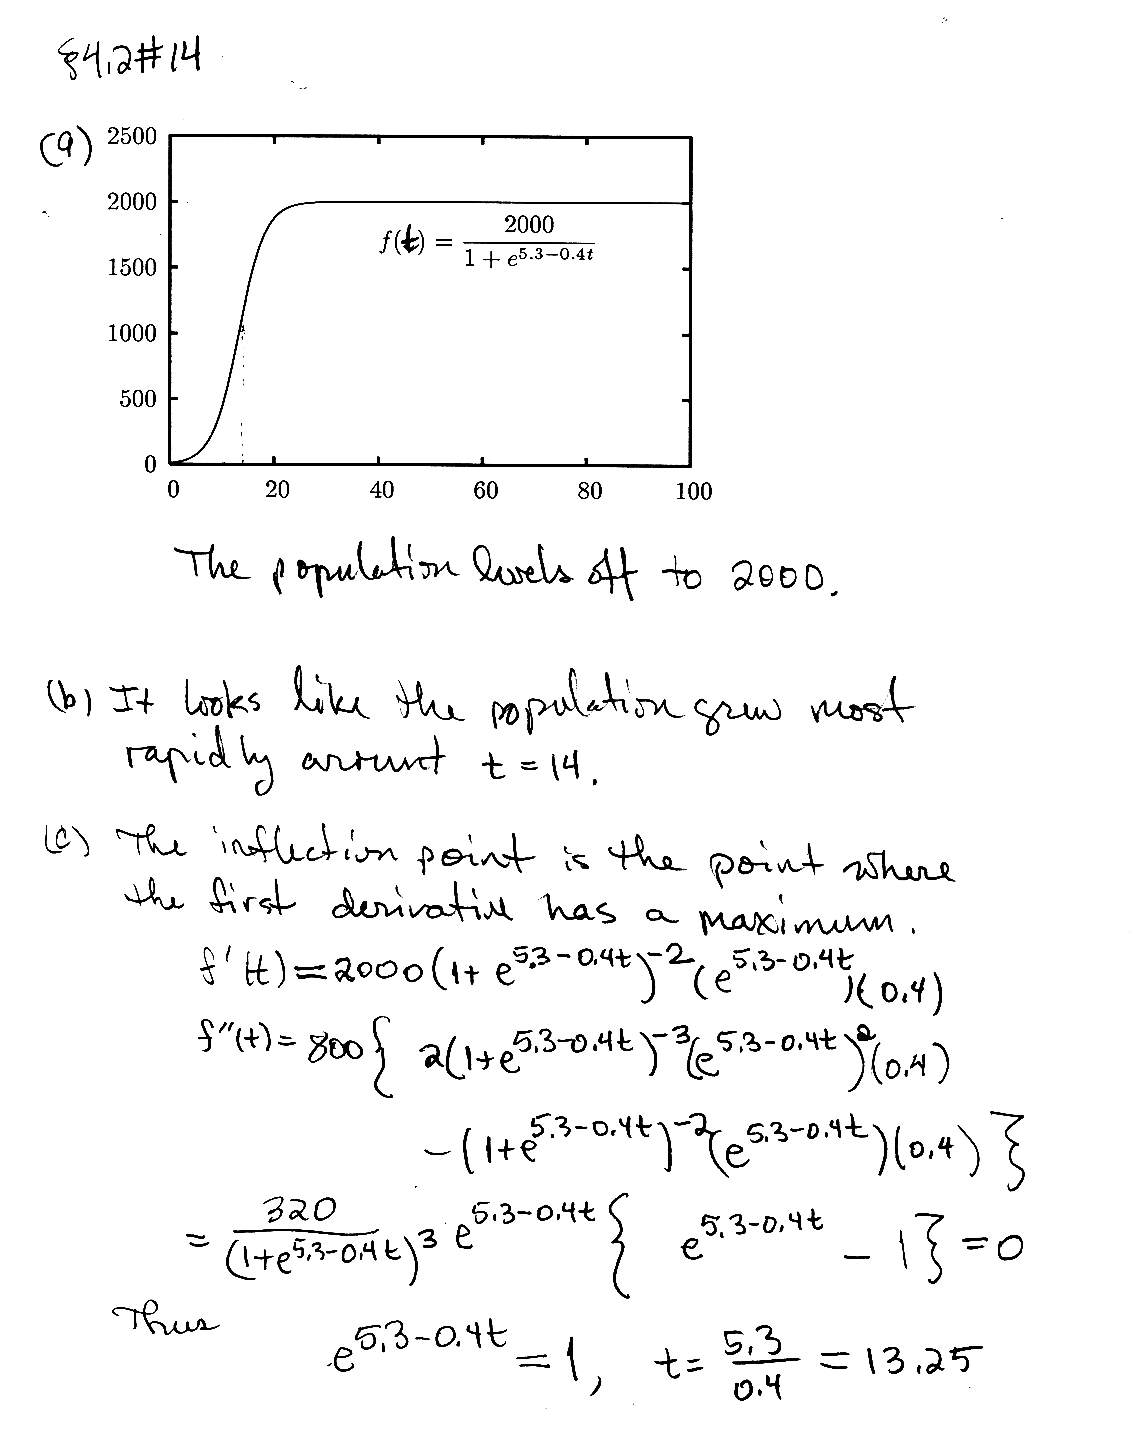 §4.2#14
(a)
2500
2000
1500
1000
500
0
f(t) = 2000 / (1 + e^{5.3−0.4t})
0 20 40 60 80 100
The population levels off to 2000.
(b) It looks like the population grew most
rapidly around t = 14.
(c) The inflection point is the point where
the first derivative has a maximum.
f'(t) = 2000(1+ e^{5.3−0.4t})^{−2}(e^{5.3−0.4t})(0.4)
f"(t) = 800{ 2(1+e^{5.3−0.4t})^{−3}(e^{5.3−0.4t})^2(0.4)
−(1+e^{5.3−0.4t})^{−2}(e^{5.3−0.4t})(0.4) }
= 320 / (1+e^{5.3−0.4t})^3 e^{5.3−0.4t} { e^{5.3−0.4t} − 1} = 0
Thus
e^{5.3−0.4t} = 1, t = 5.3 / 0.4 = 13.25